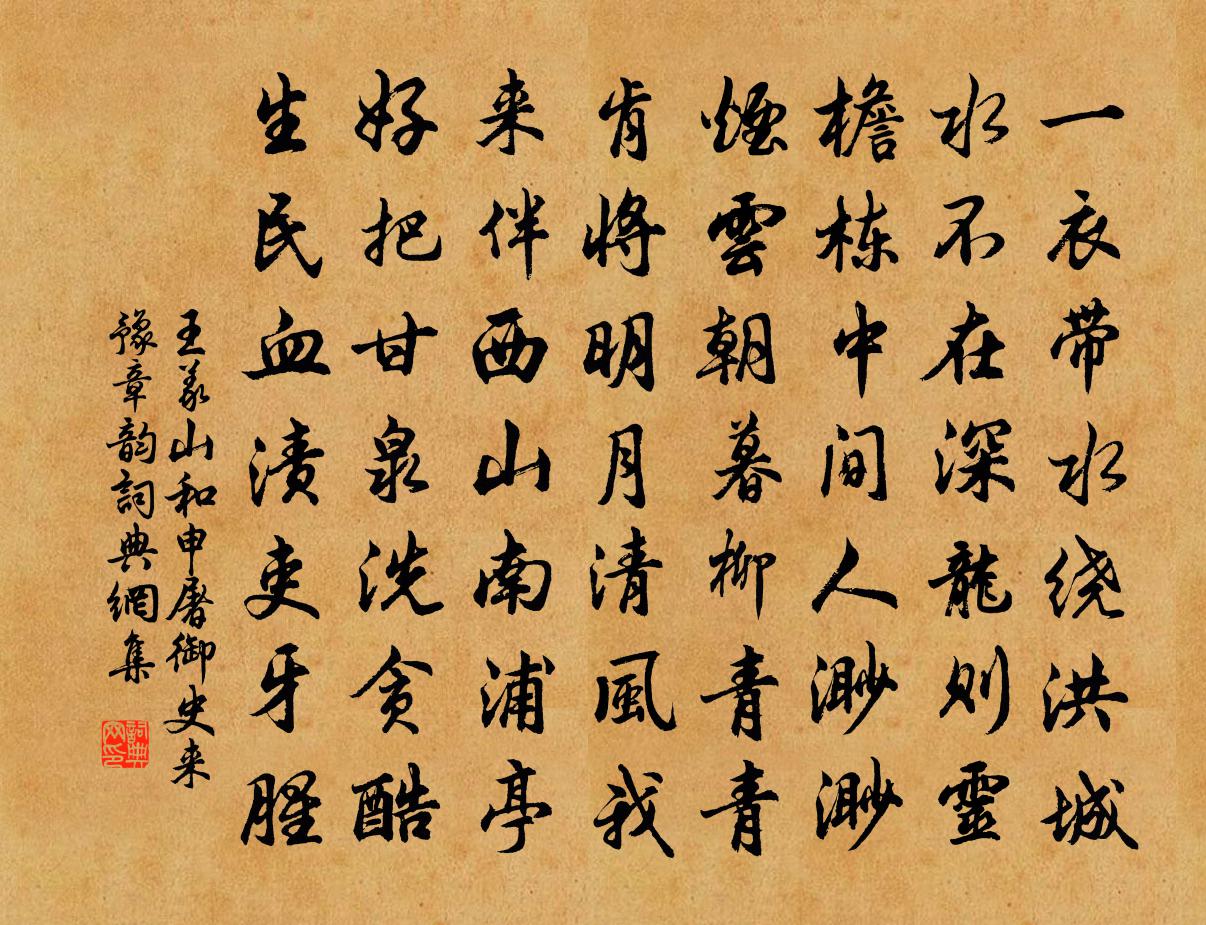 一衣带水绕洪城
水不在深龍则靈
檐栋中间人渺渺
煙雲朝暮柳青青
肯将明月清風我
来伴西山南浦亭
好把甘泉洗贪酷
生民血渍吏牙腥
王义山和申屠御史来
豫章韵詞典網集
詞典网印